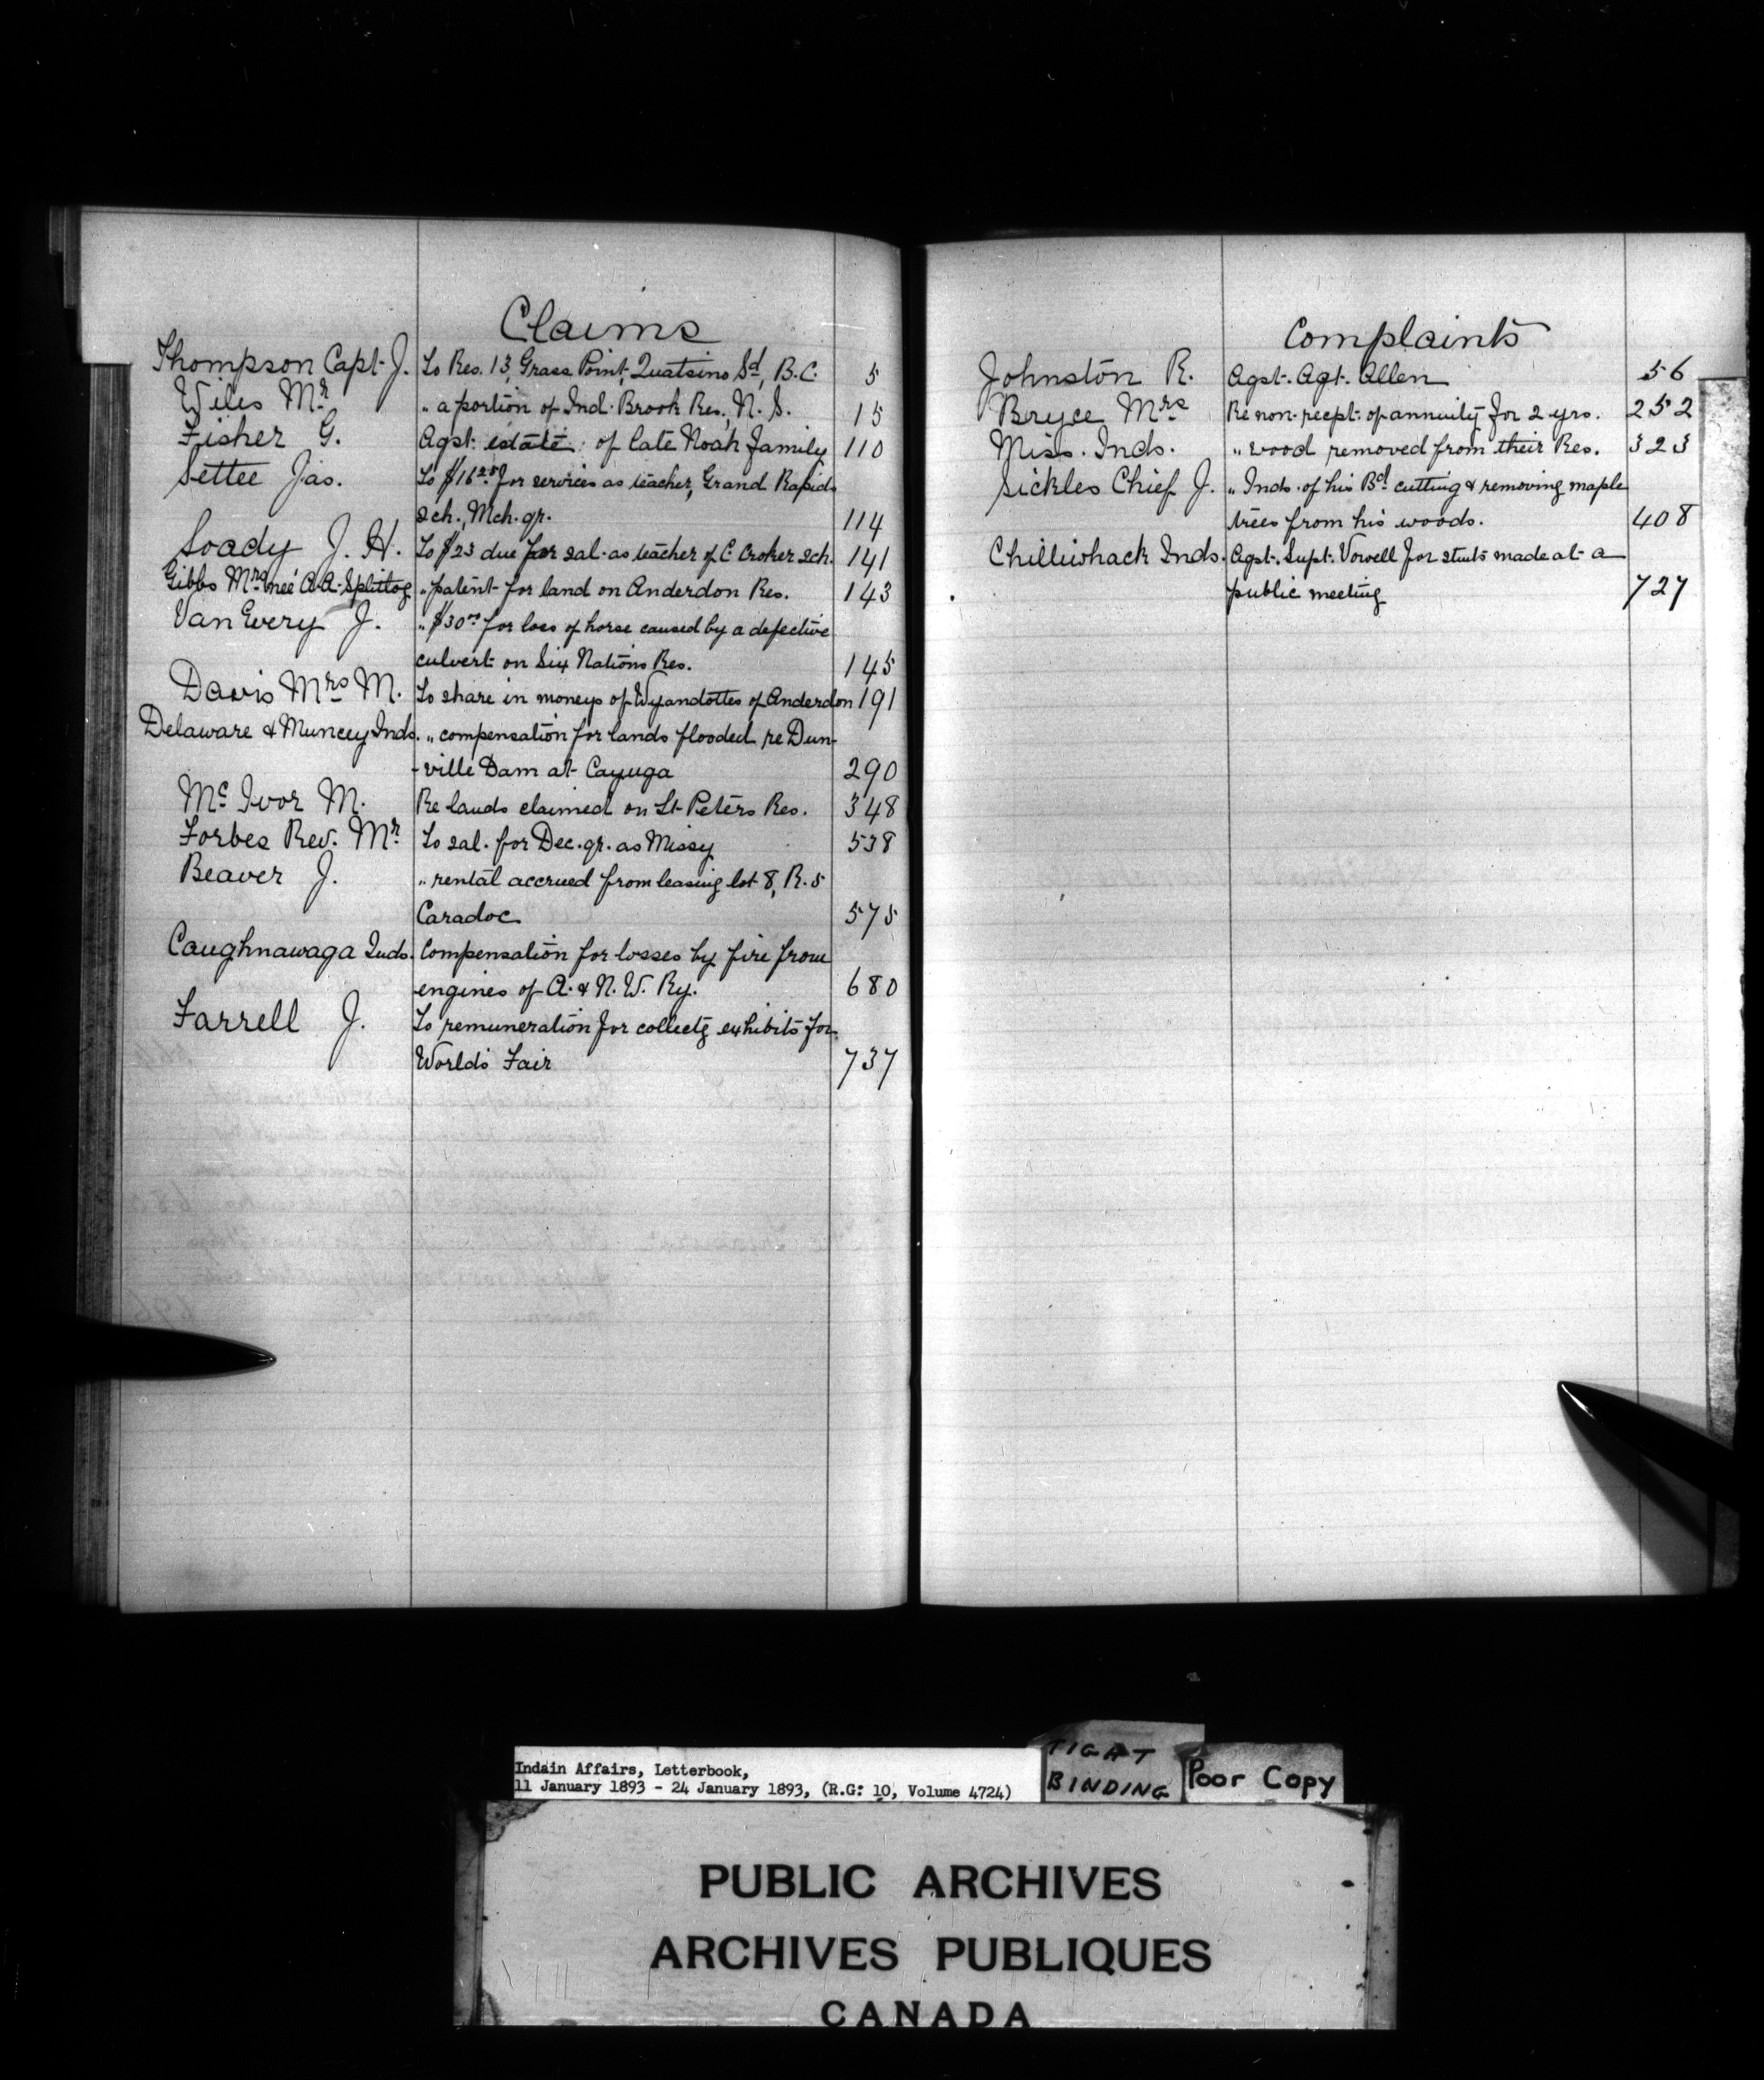 Claims
Thompson Capt. J. To Res. 13, Grass Point, Quatsino Sd, B.C. 5
Wiles Mr. „ a portion of Ind. Brook Res., N. S. 15
Fisher G. Agst. estate of late Noah family 110
Settee Jas. To $16 for services as teacher, Grand Rapids
Sch., Mch. qr. 114
Soady J. H. To $23 due for sal. as teacher of C. Croker Sch. 141
Gibbs Mrs née A.A. Splitlog „ patent for land on Anderdon Res. 143
VanEvery J. „ $30.00 for loss of horse caused by a defective
culvert on Six Nations Res. 145
Davis Mrs M. To share in moneys of Wyandottes of Anderdon 191
Delaware & Muncey Inds. „ compensation for lands flooded re Dun-
-ville Dam at Cayuga 290
Mc Ivor M. Re lands claimed on St. Peters Res. 348
Forbes Rev. Mr. To sal. for Dec. qr. as Missy 538
Beaver J. „ rental accrued from leasing lot 8, R. 5
Caradoc 575
Caughnawaga Inds. Compensation for losses by fire from
engines of A. & N. W. Ry. 680
Farrell J. To remuneration for collectg exhibits for
World's Fair 737
Complaints
Johnston R. Agst. Agt. Allen 56
Bryce Mrs Re non-recpt. of annuity for 2 yrs. 252
Miss. Inds. „ wood removed from their Res. 323
Sickles Chief J. „ Inds. of his Bd. cutting & removing maple
trees from his woods. 408
Chilliwhack Inds. Agst. Supt. Vowell for stmts made at a
public meeting 727
Indain Affairs, Letterbook,
11 January 1893 - 24 January 1893, (R.G: 10, Volume 4724)
TIGHT
BINDING
Poor Copy
PUBLIC ARCHIVES
ARCHIVES PUBLIQUES
CANADA